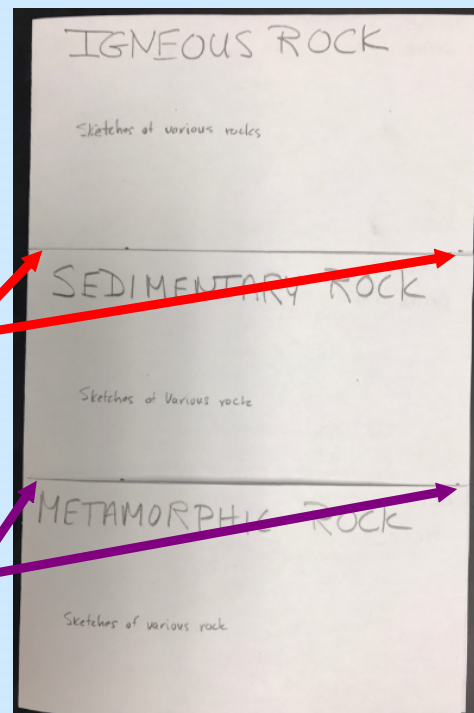 IGNEOUS ROCK
Sketches of various rocks
SEDIMENTARY ROCK
Sketches of Various rocks
METAMORPHIC ROCK
Sketches of various rock